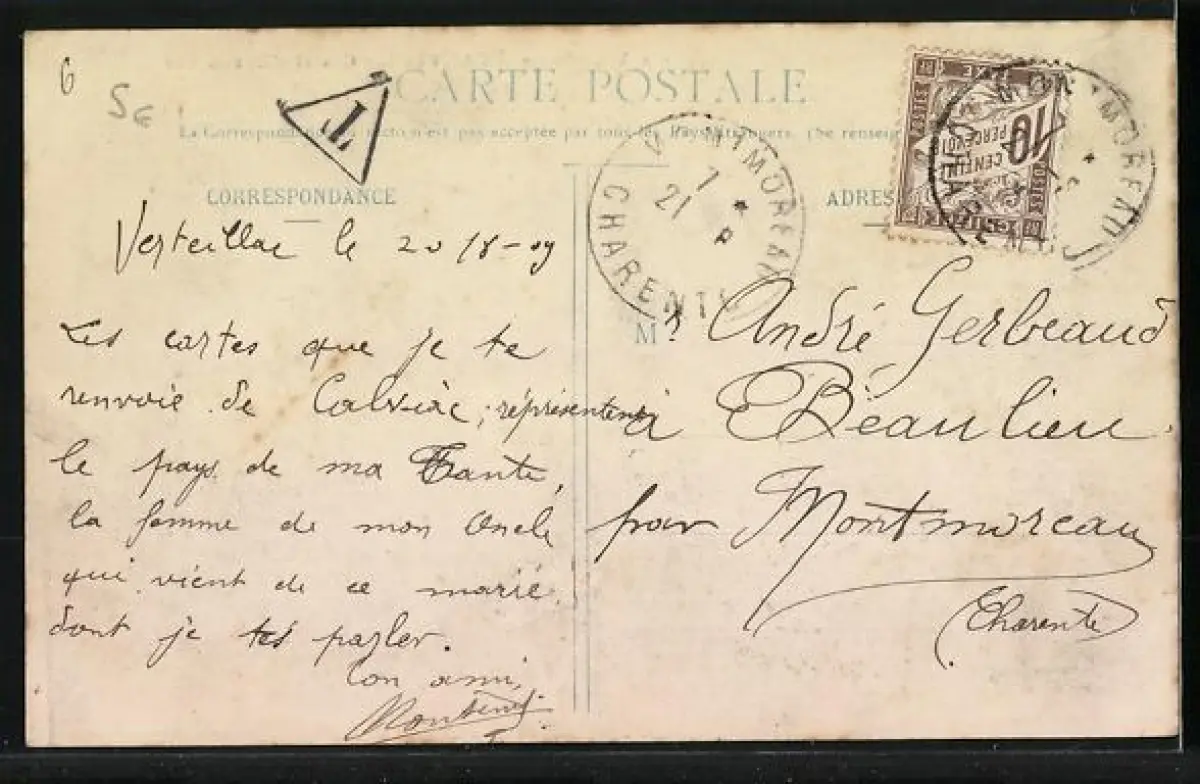 6
5€
T
CARTE POSTALE
La Correspondance au recto n'est pas acceptée par tous les Pays étrangers. (Se renseig
CORRESPONDANCE
ADRES
MONTMOREAU
7 *
21 8
CHARENTE
POSTES
10
CENTIMES
A PERCEVOIR
MONTMOREAU
CHARENTE
Verteillac le 20/8-09
Les cartes que je te
renvoie de Calviac, réprésentent
le pays de ma Tante,
la femme de mon Oncle
qui vient de ce marié
dont je tes parler.
Ton ami,
M r André Gerbeaud
à Béaulieu
par Montmoreau
Charente